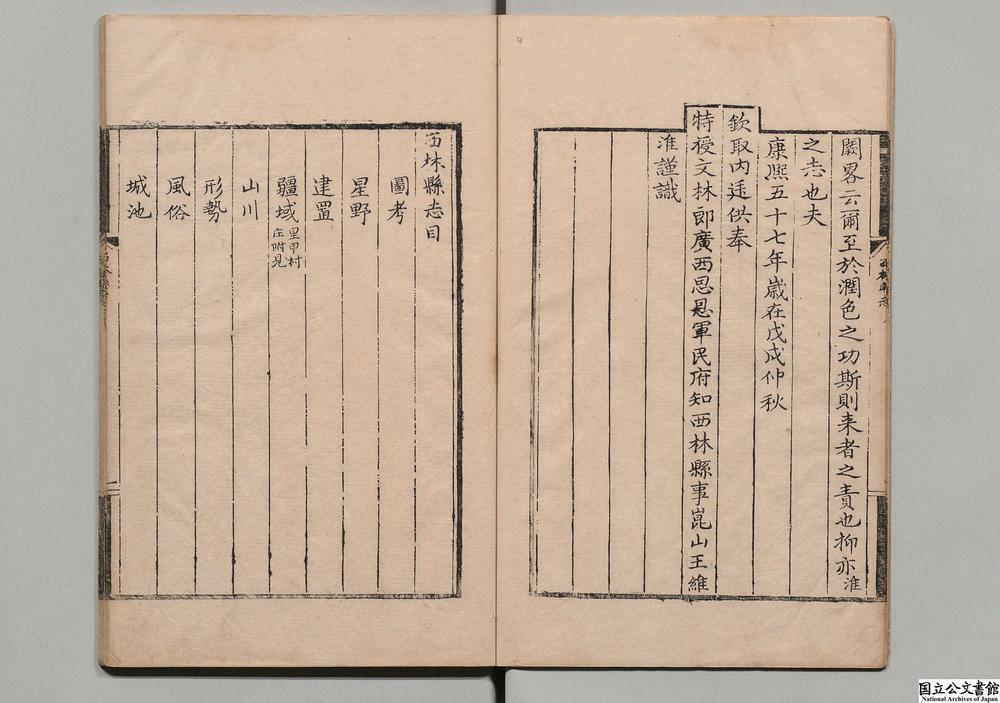 闕畧云爾至於潤色之功斯則来者之責也抑亦淮
之志也夫
康熙五十七年歲在戊戌仲秋
欽取内廷供奉
特授文林郎廣西思恩軍民府知西林縣事崑山王維
淮謹識
西林縣志目
圖考
星野
建置
疆域 里甲村庄附見
山川
形勢
風俗
城池
西林縣志
国立公文書館
National Archives of Japan